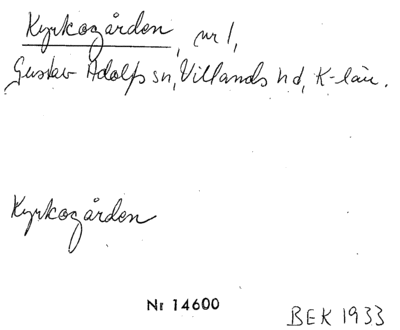 Kyrkogården, nr 1,
Gustav Adolfs sn, Villands hd, K-län.
Kyrkogården
Nr 14600
BEK 1933